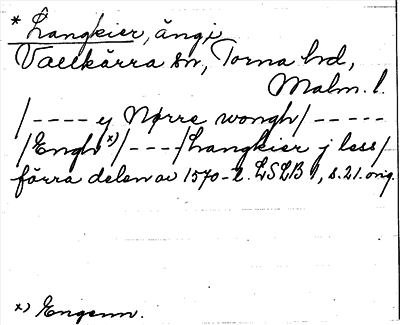 * Langkier, ängi
Vallkärra sn, Torna hd,
Malm. l.
/---- y Nørre wongh/-----
/Engh x)/----/Langkier j less/
förra delen av 1570-2. LSLB 1, s. 21. orig.
x) Engenn.